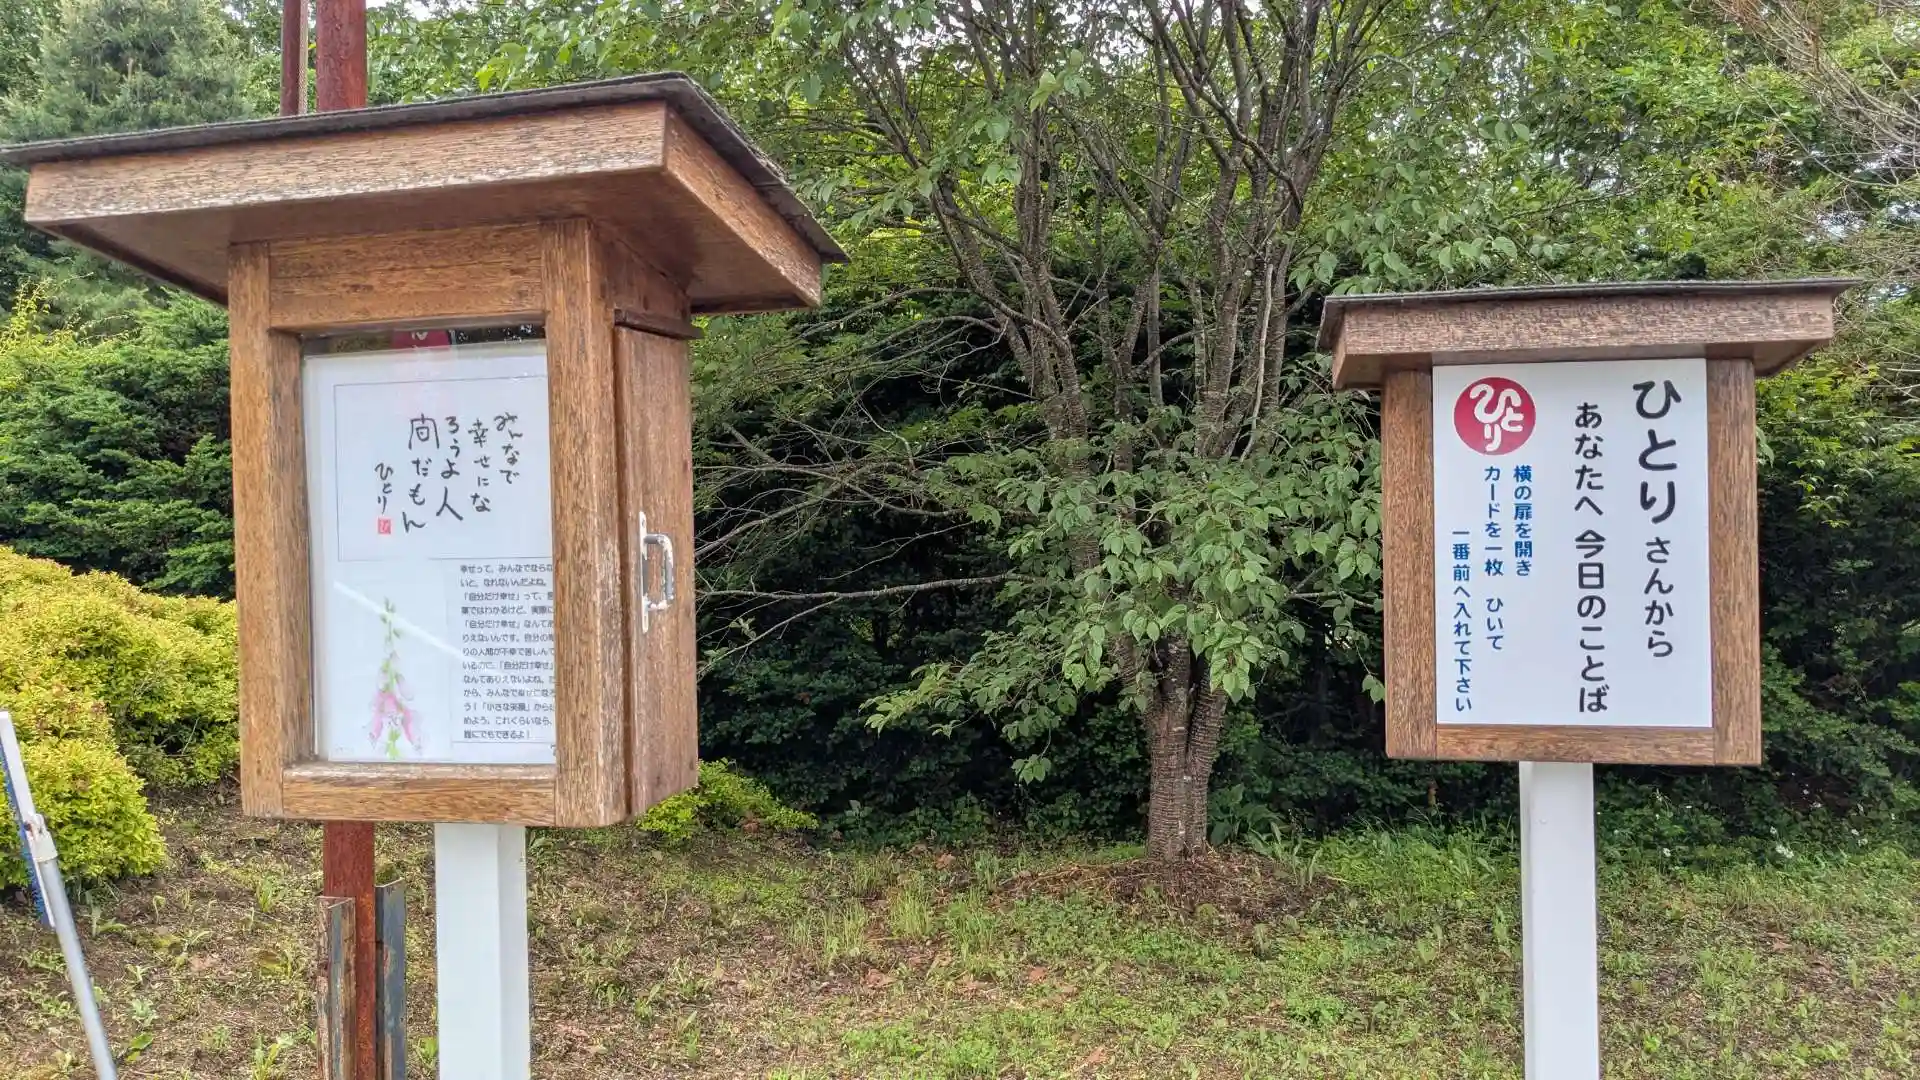 みんなで
幸せにな
ろうよ人
間だもん
ひとり
幸せって、みんなでならな
いと、なれないんだよね。
「自分だけ幸せ」って、言
葉ではわかるけど、実際に
「自分だけ幸せ」なんてあ
りえないんです。自分の周
りの人間が不幸で苦しんで
いるのに、「自分だけ幸せ」
なんてありえないよね。だ
から、みんなで幸せになろ
う！「小さな笑顔」から始
めよう。これくらいなら、
誰にでもできるよ！
ひとりさんから
あなたへ 今日のことば
ひとり
横の扉を開き
カードを一枚 ひいて
一番前へ入れて下さい